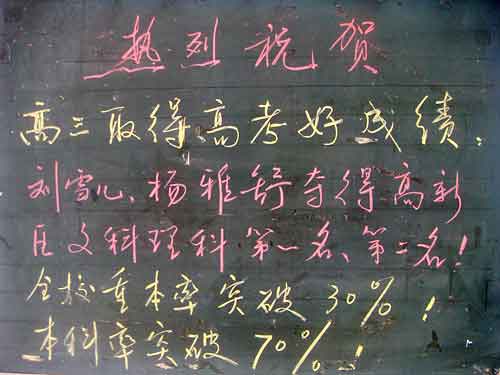 热烈祝贺
高三取得高考好成绩:
刘雪心、杨雅舒夺得高新
区文科理科第一名、第二名!
全校重本率突破30%!
本科率突破70%!